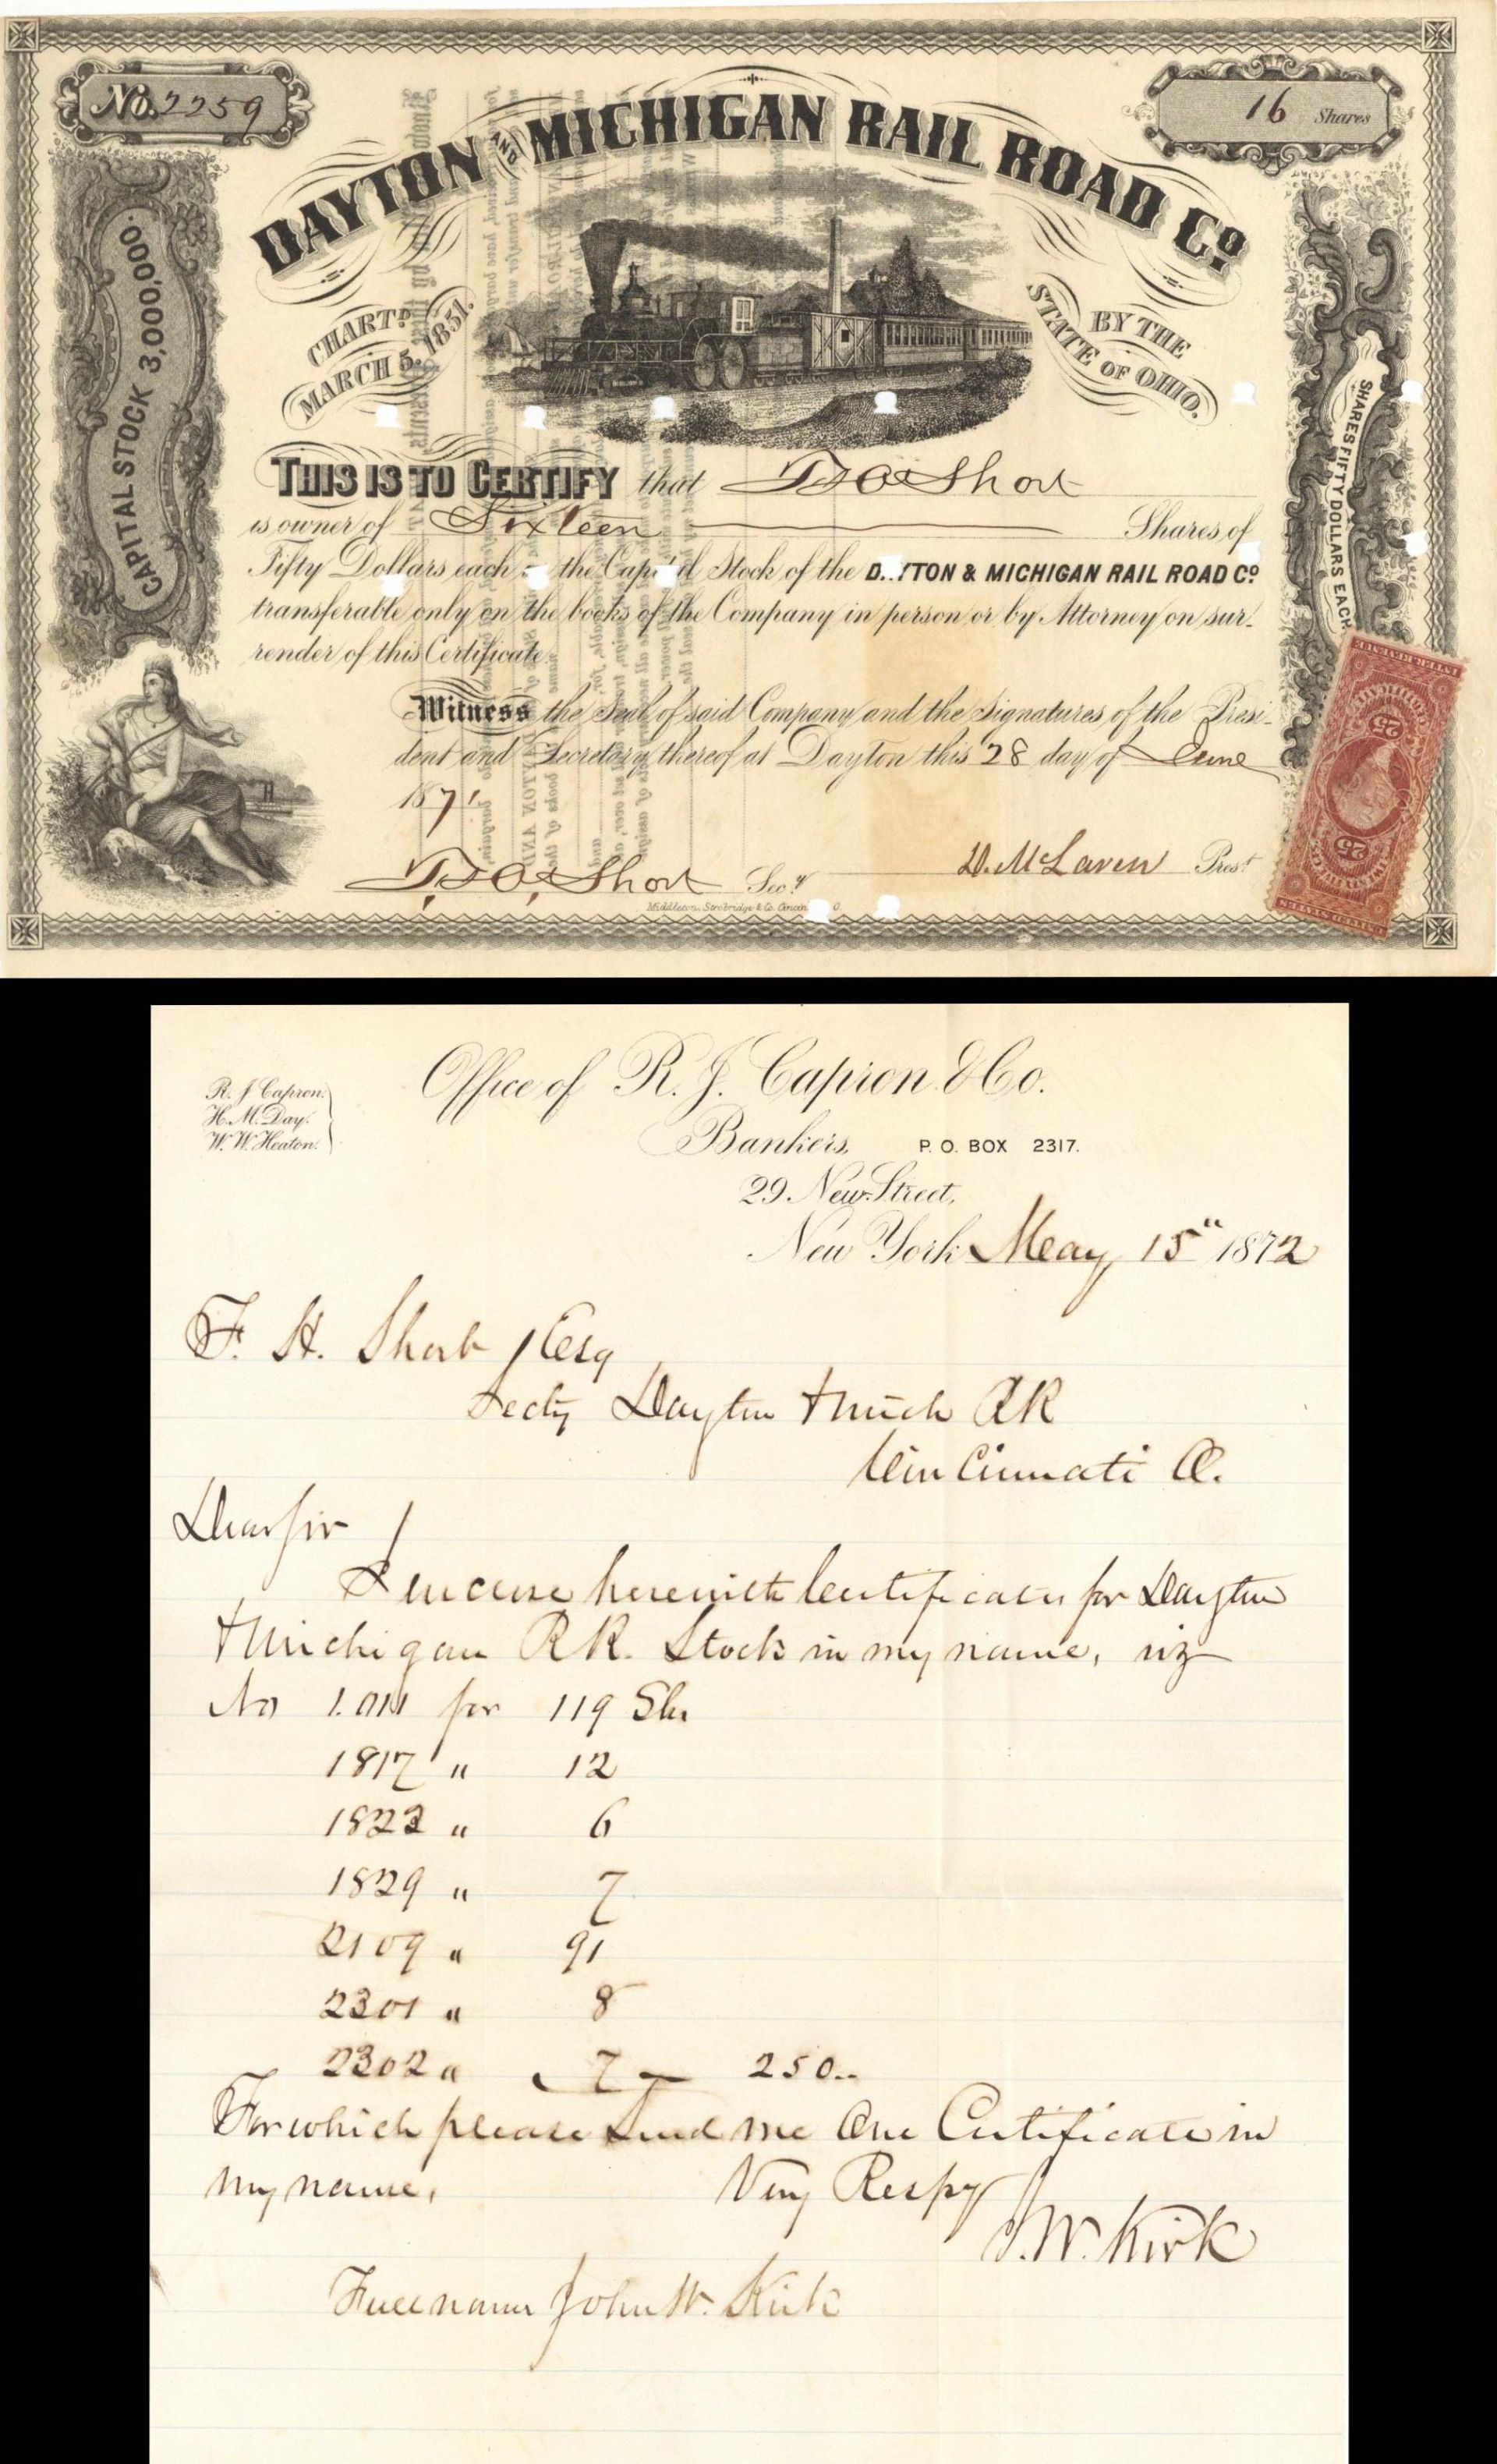 No. 2259
16 Shares
DAYTON AND MICHIGAN RAIL ROAD Co
CHARTD MARCH 5, 1851.
BY THE STATE OF OHIO.
CAPITAL STOCK 3,000,000.
SHARES FIFTY DOLLARS EACH
THIS IS TO CERTIFY that Short
is owner of Sixteen Shares of
Fifty Dollars each the Capital Stock of the DAYTON & MICHIGAN RAIL ROAD Co
transferable only on the books of the Company in person or by Attorney on sur-
render of this Certificate.
Witness the Seal of said Company and the Signatures of the Presi-
dent and Secretary thereof at Dayton this 28 day of June
1871
Short Secy
D. McLaren Prest
Middleton, Strobridge & Co. Cincin O.
INTER. REVENUE
25
25
UNITED STATES
Office of R. J. Capron & Co.
R. J. Capron.
H. M. Day.
W. W. Heaton.
Bankers, P. O. BOX 2317.
29 New Street,
New York May 15" 1872
F. H. Short Esq
Secty Dayton & Mich RR
Cincinnati O.
Dear Sir
I enclose herewith Certificates for Dayton
& Michigan RR. Stock in my name, viz
No 1.011 for 119 Shs
1817 " 12
1823 " 6
1829 " 7
2109 " 91
2301 " 8
2302 " 7 — 250..
For which please send me One Certificate in
my name,
Very Respy
J. W. Kirk
Full name John W. Kirk